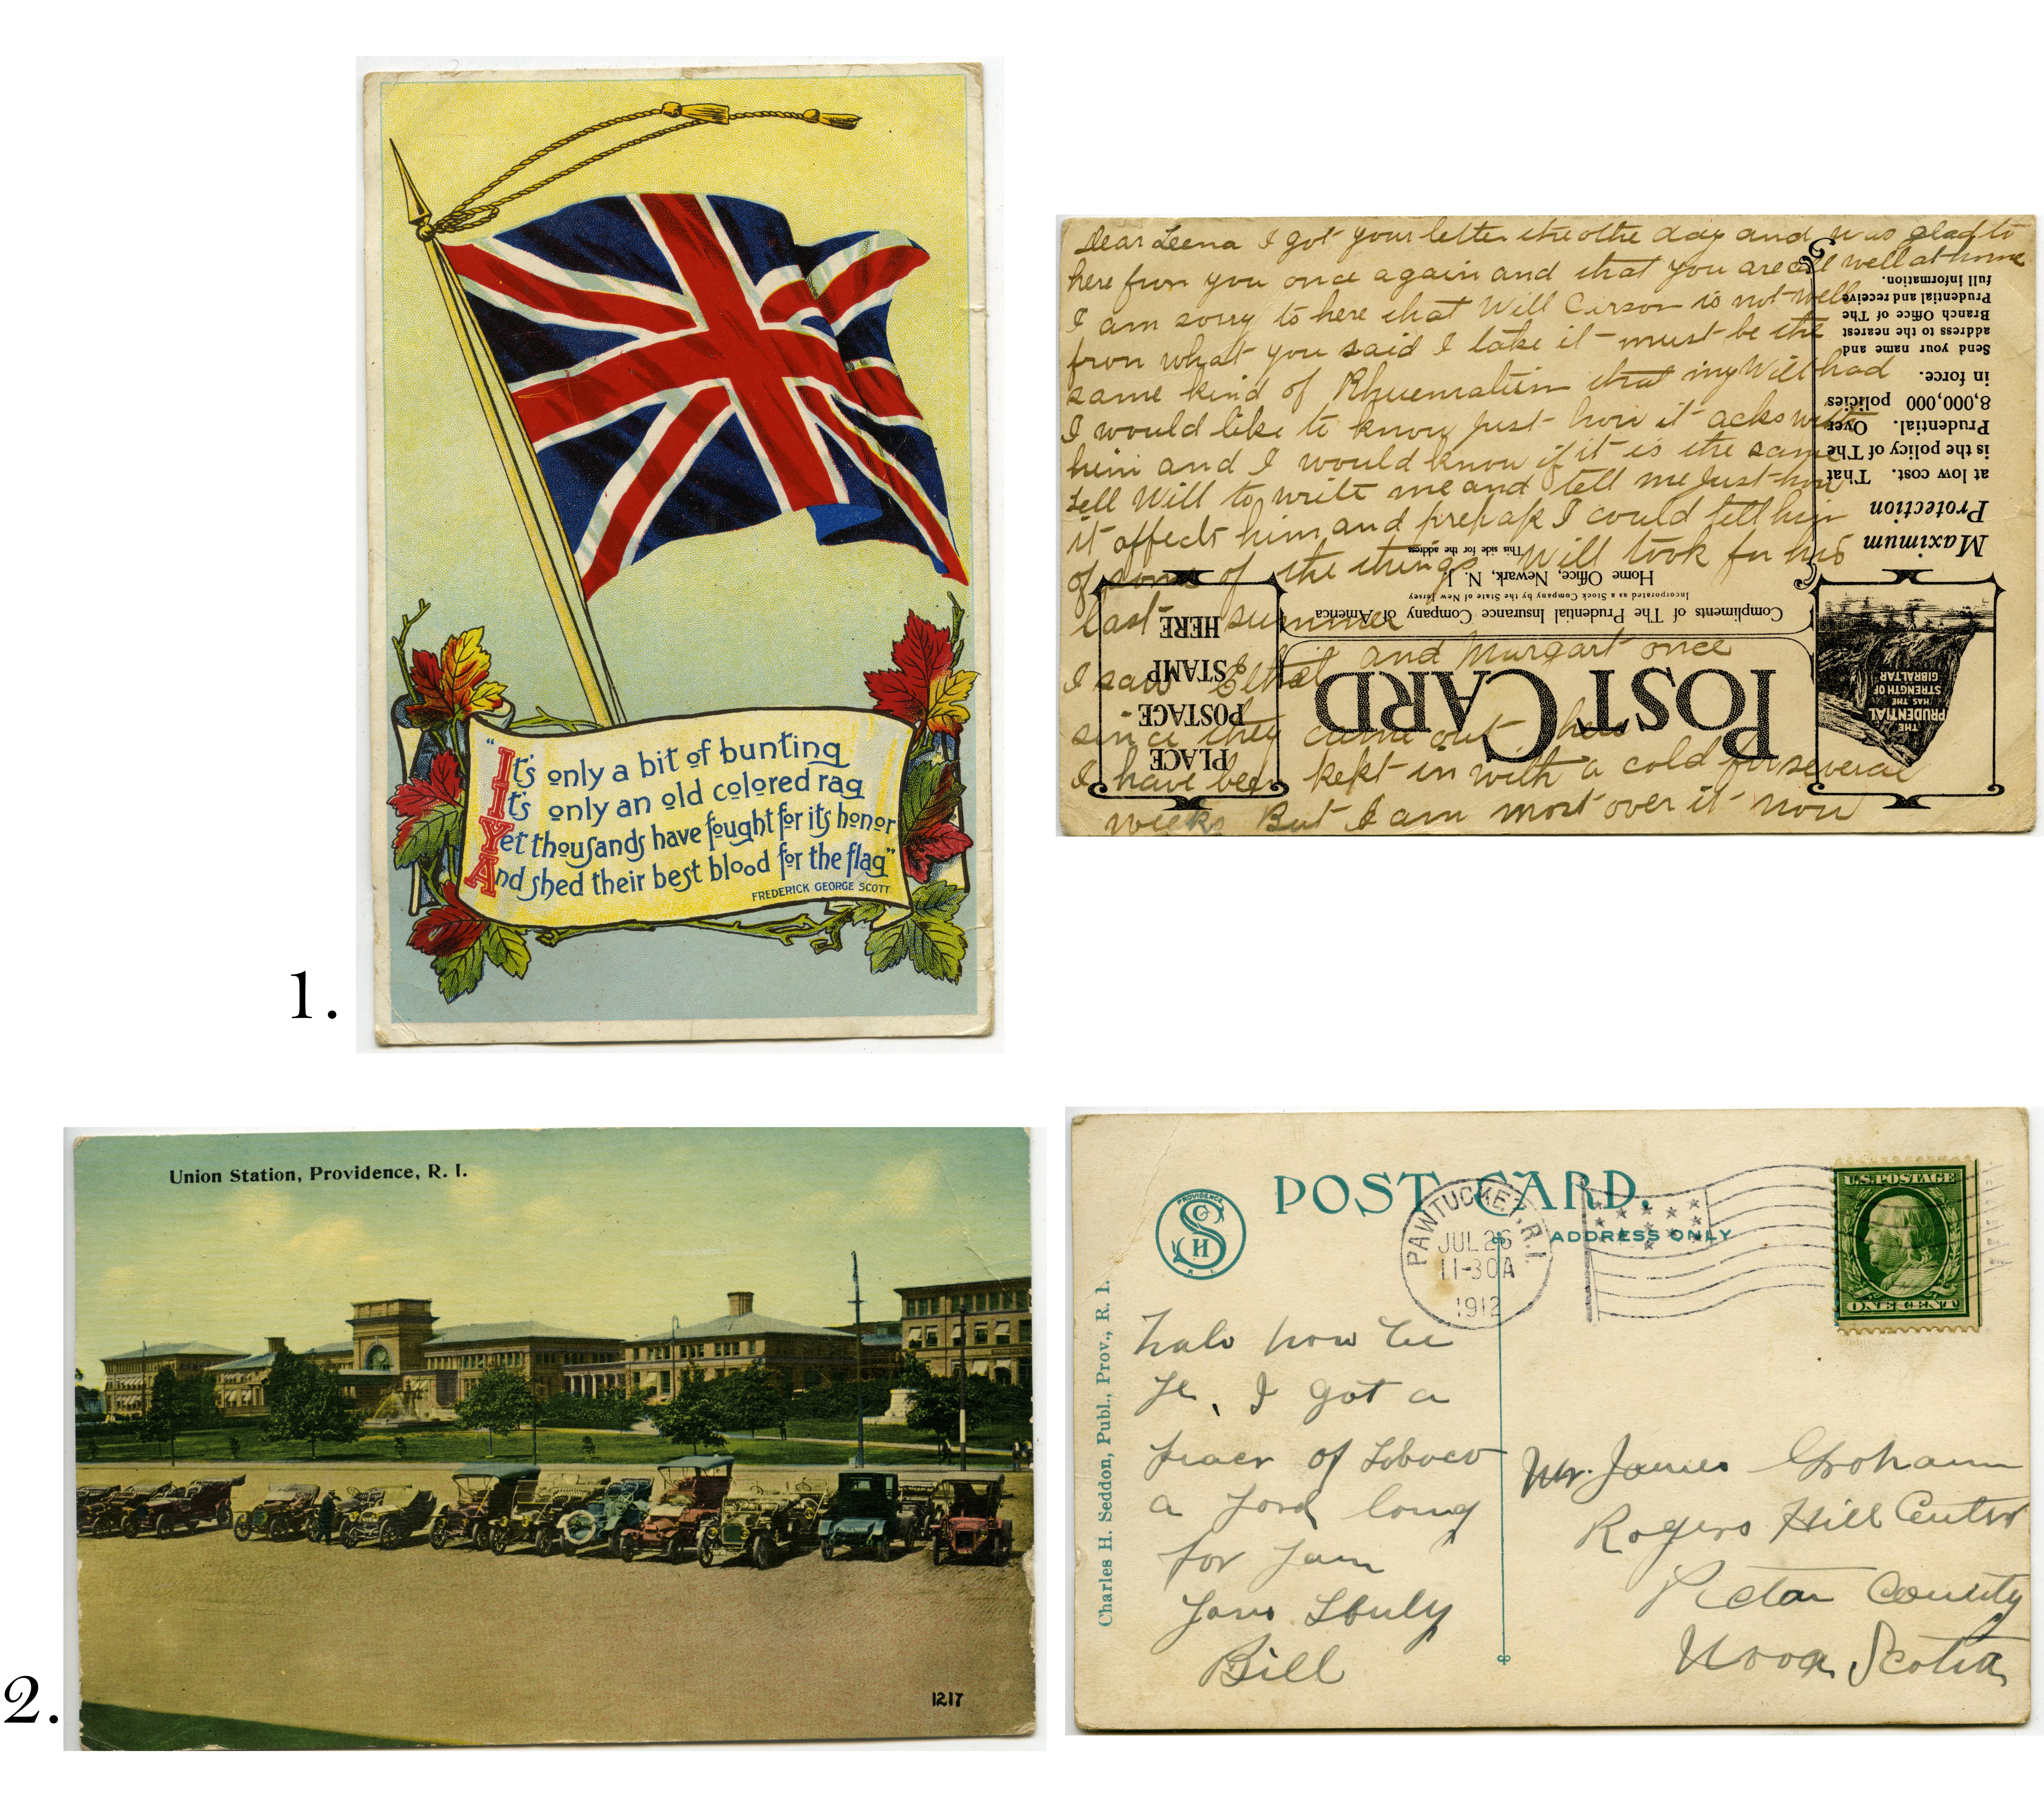 "It's only a bit of bunting
It's only an old colored rag
Yet thousands have fought for its honor
And shed their best blood for the flag"
FREDERICK GEORGE SCOTT
1.
Dear Leena I got your letter the othe day and was glad to
here frun you once again and that you are all well at home
I am sorry to here that Will Cirson is not well
frun what you said I take it must be the
same kind of Rhuematism that my Will had
I would like to know Just how it acks with
him and I would know if it is the same
tell Will to write me and tell me Just how
it affects him and prehaps I could tell him
of some of the things Will took for his
last summer
I saw Ethel and Murgart once
since they came out here
I have been kept in with a cold for several
weeks But I am most over it now
POST CARD
Compliments of The Prudential Insurance Company of America
Incorporated as a Stock Company by the State of New Jersey
Home Office, Newark, N. J.
This side for the address
PLACE
POSTAGE
STAMP
HERE
THE
PRUDENTIAL
HAS THE
STRENGTH OF
GIBRALTAR
Maximum
Protection
at low cost. That
is the policy of The
Prudential. Over
8,000,000 policies
in force.
Send your name and
address to the nearest
Branch Office of The
Prudential and receive
full information.
Union Station, Providence, R. I.
1217
2.
POST CARD.
ADDRESS ONLY
PROVIDENCE
R. I.
PAWTUCKET, R.I.
JUL 26
11-30A
1912
U.S. POSTAGE
ONE CENT
Charles H. Seddon, Publ., Prov., R. I.
halo how be
ye, I got a
peacr of Lobaco
a yord long
for
Bill
Mr. James Grohamm
Rogers Hill Center
Pictou County
Nova Scotia